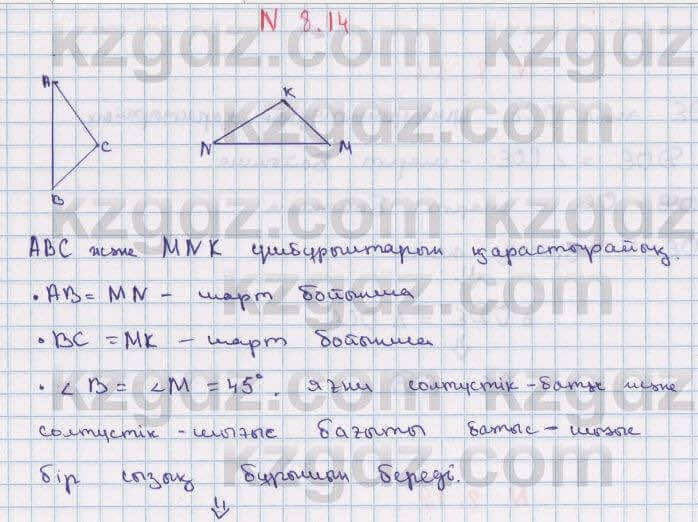 N 8.14
A
K
C
N
M
B
ABC және MNK үшбұрыштарын қарастырайық.
• AB = MN – шарт бойынша
• BC = MK – шарт бойынша
• ∠B = ∠M = 45°, яғни солтүстік-батыс және
солтүстік-шығыс бағыты батыс-шығыс
бір сызық бұрышын береді.
⇓
kzgdz.com kzgdz.com
kzgdz.com kzgdz.com
kzgdz.com kzgdz.com
kzgdz.com kzgdz.com